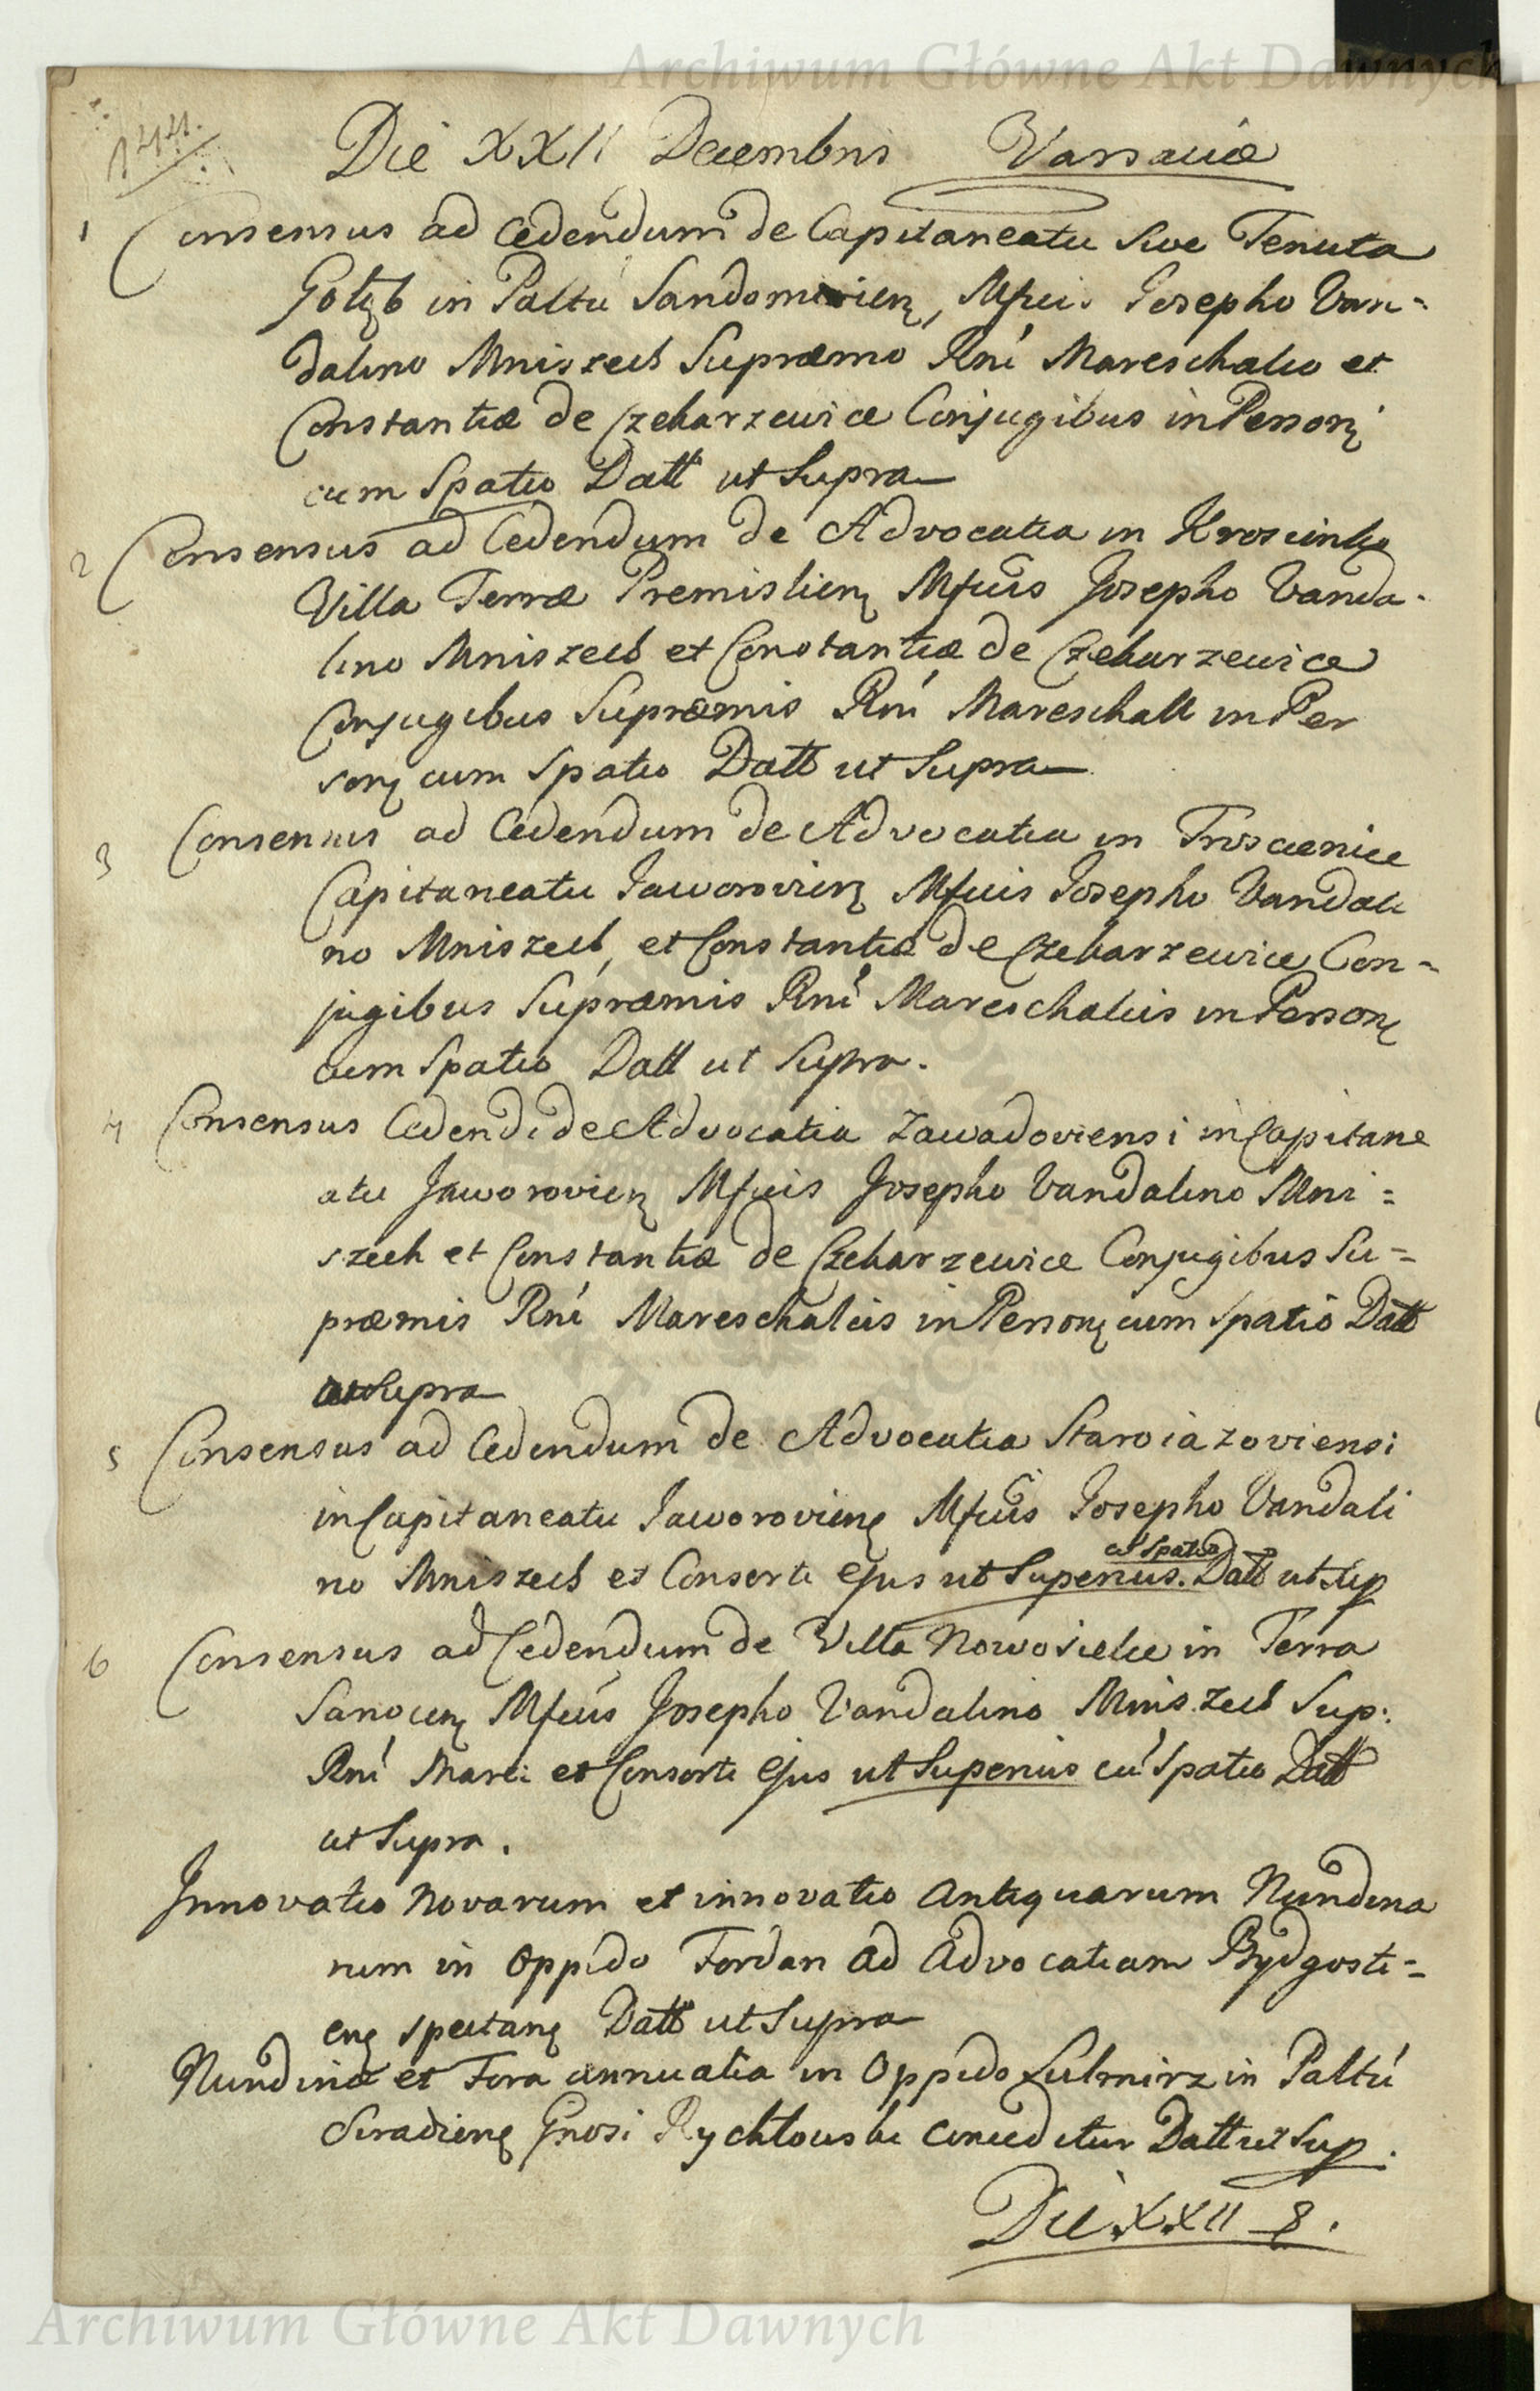 Archiwum Główne Akt Dawnych
144.
Die XXII Decembris Varsaviæ
1 Consensus ad Cedendum de Capitaneatu Sive Tenuta
Gołęb in Palttu Sandomirien, Mfcis Josepho Van-
dalino Mniszech Supræmo Rni Mareschalco et
Constantiæ de Czekarzewice Conjugibus in Person
cum Spatio Datt ut Supra
2 Consensus ad Cedendum de Advocatia in Kroscinko
Villa Terræ Premislien Mfcis Josepho Vanda-
lino Mniszech et Constantiæ de Czekarzewice
Conjugibus Supræmis Rni Mareschall in Per
son cum Spatio Datt ut Supra
3 Consensus ad Cedendum de Advocatia in Troscienice
Capitaneatu Jaworovien Mfcis Josepho Vandali
no Mniszech, et Constantiæ de Czekarzewice Con-
jugibus Supræmis Rni Mareschalcis in Person
cum Spatio Datt ut Supra.
4 Consensus Cedendi de Advocatia Zawadoviensi in Capitane
atu Jaworovien Mfcis Josepho Vandalino Mni=
szech et Constantiæ de Czekarzewice Conjugibus Su=
præmis Rni Mareschalcis in Person cum Spatio Datt
ut Supra
5 Consensus ad Cedendum de Advocatia Staroiazoviensi
in Capitaneatu Jaworovien Mfcis Josepho Vandali
cu Spatio
no Mniszech et Conserti Ejus ut Superius. Datt ut Sup
6 Consensus ad Cedendum de Villa Nowosielce in Terra
Sanocen Mfcis Josepho Vandalino Mniszech Sup:
Rni Marci et Consorti Ejus ut Superius cu Spatio Datt
ut Supra.
Innovatio Novarum et innovatio Antiquarum Nundina
rum in Oppido Fordan ad Advocatiam Bydgosti-
en spectan Datt ut Supra
Nundinæ et Fora annualia in Oppido Sulmirz in Palttu
Siradien Gnosi Rychłowski conceditur Datt ut Sup.
Die XXII 8.
Archiwum Główne Akt Dawnych